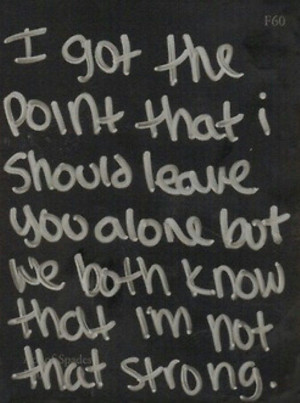 F60
I got the
point that i
should leave
you alone but
we both know
that im not
that strong.